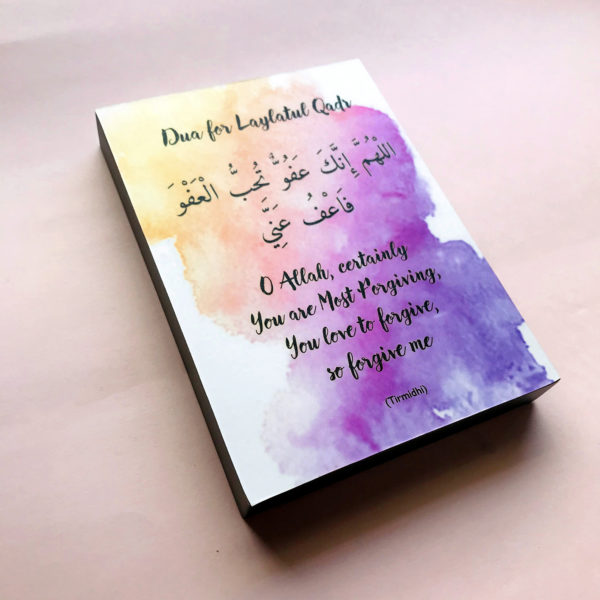 Dua for Laylatul Qadr
اللّٰهُمَّ إِنَّكَ عَفُوٌّ تُحِبُّ الْعَفْوَ
فَاعْفُ عَنِّي
O Allah, certainly
You are Most Forgiving,
You love to forgive,
so forgive me
(Tirmidhi)